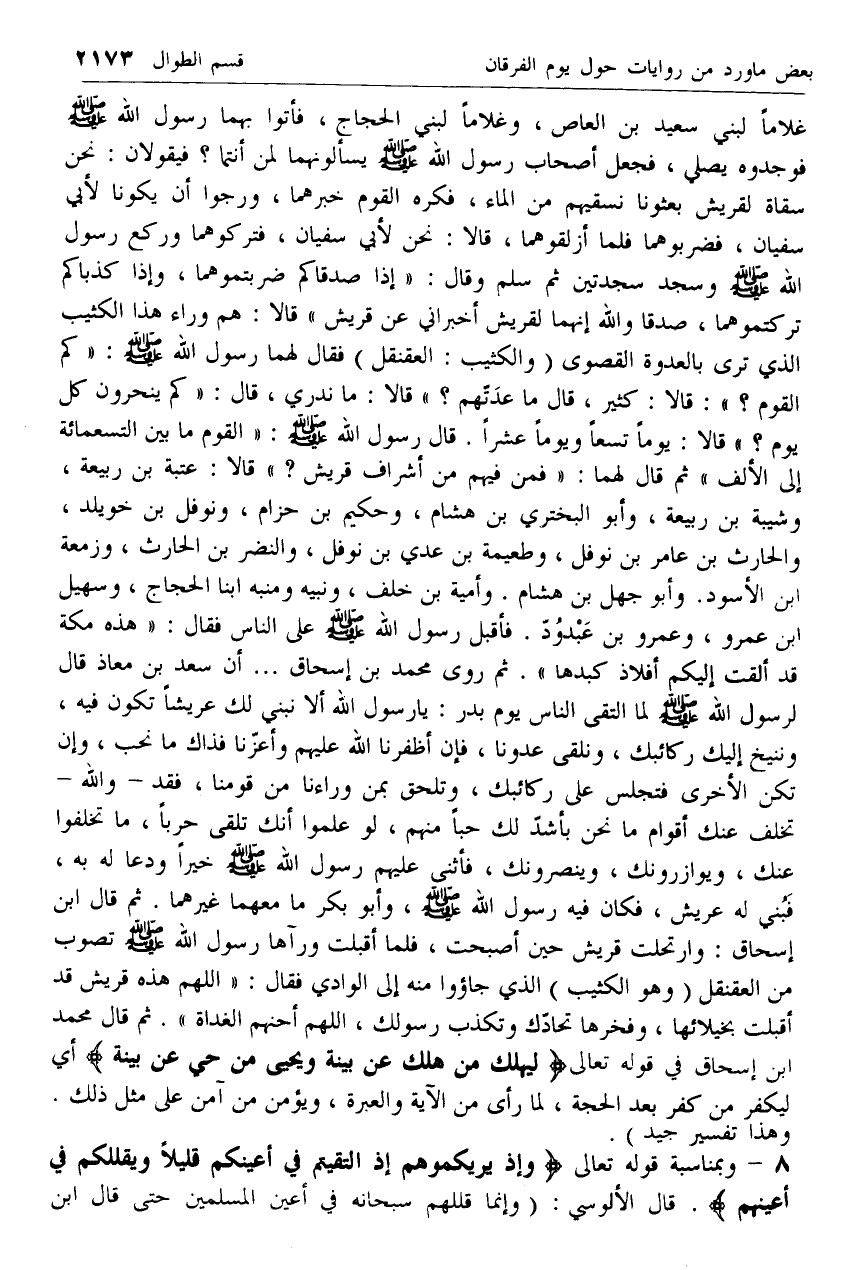 بعض ماورد من روايات حول يوم الفرقان قسم الطوال ٢١٧٣
غلاماً لبني سعيد بن العاص ، وغلاماً لبني الحجاج ، فأتوا بهما رسول الله ﷺ
فوجدوه يصلي ، فجعل أصحاب رسول الله ﷺ يسألونهما لمن أنتما ؟ فيقولان : نحن
سقاة لقريش بعثونا نسقيهم من الماء ، فكره القوم خبرهما ، ورجوا أن يكونا لأبي
سفيان ، فضربوهما فلما أزلقوهما ، قالا : نحن لأبي سفيان ، فتركوهما وركع رسول
الله ﷺ وسجد سجدتين ثم سلم وقال : « إذا صدقاكم ضربتموهما ، وإذا كذباكم
تركتموهما ، صدقا والله إنهما لقريش أخبراني عن قريش » قالا : هم وراء هذا الكثيب
الذي ترى بالعدوة القصوى ( والكثيب : العقنقل ) فقال لهما رسول الله ﷺ : « كم
القوم ؟ » : قالا : كثير ، قال ما عدَتّهم ؟ » قالا : ما ندري ، قال : « كم ينحرون كل
يوم ؟ » قالا : يوماً تسعاً ويوماً عشراً . قال رسول الله ﷺ : « القوم ما بين التسعمائة
إلى الألف » ثم قال لهما : « فمن فيهم من أشراف قريش ? » قالا : عتبة بن ربيعة ،
وشيبة بن ربيعة ، وأبو البختري بن هشام ، وحكيم بن حزام ، ونوفل بن خويلد ،
والحارث بن عامر بن نوفل ، وطعيمة بن عدي بن نوفل ، والنضر بن الحارث ، وزمعة
ابن الأسود. وأبو جهل بن هشام . وأمية بن خلف ، ونبيه ومنبه ابنا الحجاج ، وسهيل
ابن عمرو ، وعمرو بن عَبْدوُدّ . فأقبل رسول الله ﷺ على الناس فقال : « هذه مكة
قد ألقت إليكم أفلاذ كبدها » . ثم روى محمد بن إسحاق ... أن سعد بن معاذ قال
لرسول الله ﷺ لما التقى الناس يوم بدر : يارسول الله ألا نبني لك عريشاً تكون فيه ،
وننيخ إليك ركائبك ، ونلقى عدونا ، فإن أظفرنا الله عليهم وأعزّنا فذاك ما نحب ، وإن
تكن الأخرى فتجلس على ركائبك ، وتلحق بمن وراءنا من قومنا ، فقد – والله –
تخلف عنك أقوام ما نحن بأشدّ لك حباً منهم ، لو علموا أنك تلقى حرباً ، ما تخلفوا
عنك ، ويوازرونك ، وينصرونك ، فأثنى عليهم رسول الله ﷺ خيراً ودعا له به ،
فَبُني له عريش ، فكان فيه رسول الله ﷺ ، وأبو بكر ما معهما غيرهما . ثم قال ابن
إسحاق : وارتحلت قريش حين أصبحت ، فلما أقبلت ورآها رسول الله ﷺ تصوب
من العقنقل ( وهو الكثيب ) الذي جاؤوا منه إلى الوادي فقال : « اللهم هذه قريش قد
أقبلت بخيلائها ، وفخرها تحادّك وتكذب رسولك ، اللهم أحنهم الغداة » . ثم قال محمد
ابن إسحاق في قوله تعالى ﴿ ليهلك من هلك عن بينة ويحيى من حي عن بينة ﴾ أي
ليكفر من كفر بعد الحجة ، لما رأى من الآية والعبرة ، ويؤمن من آمن على مثل ذلك .
وهذا تفسير جيد ) .
٨ – وبمناسبة قوله تعالى ﴿ وإذ يريكموهم إذ التقيتم في أعينكم قليلاً ويقللكم في
أعينهم ﴾ . قال الألوسي : ( وإنما قللهم سبحانه في أعين المسلمين حتى قال ابن